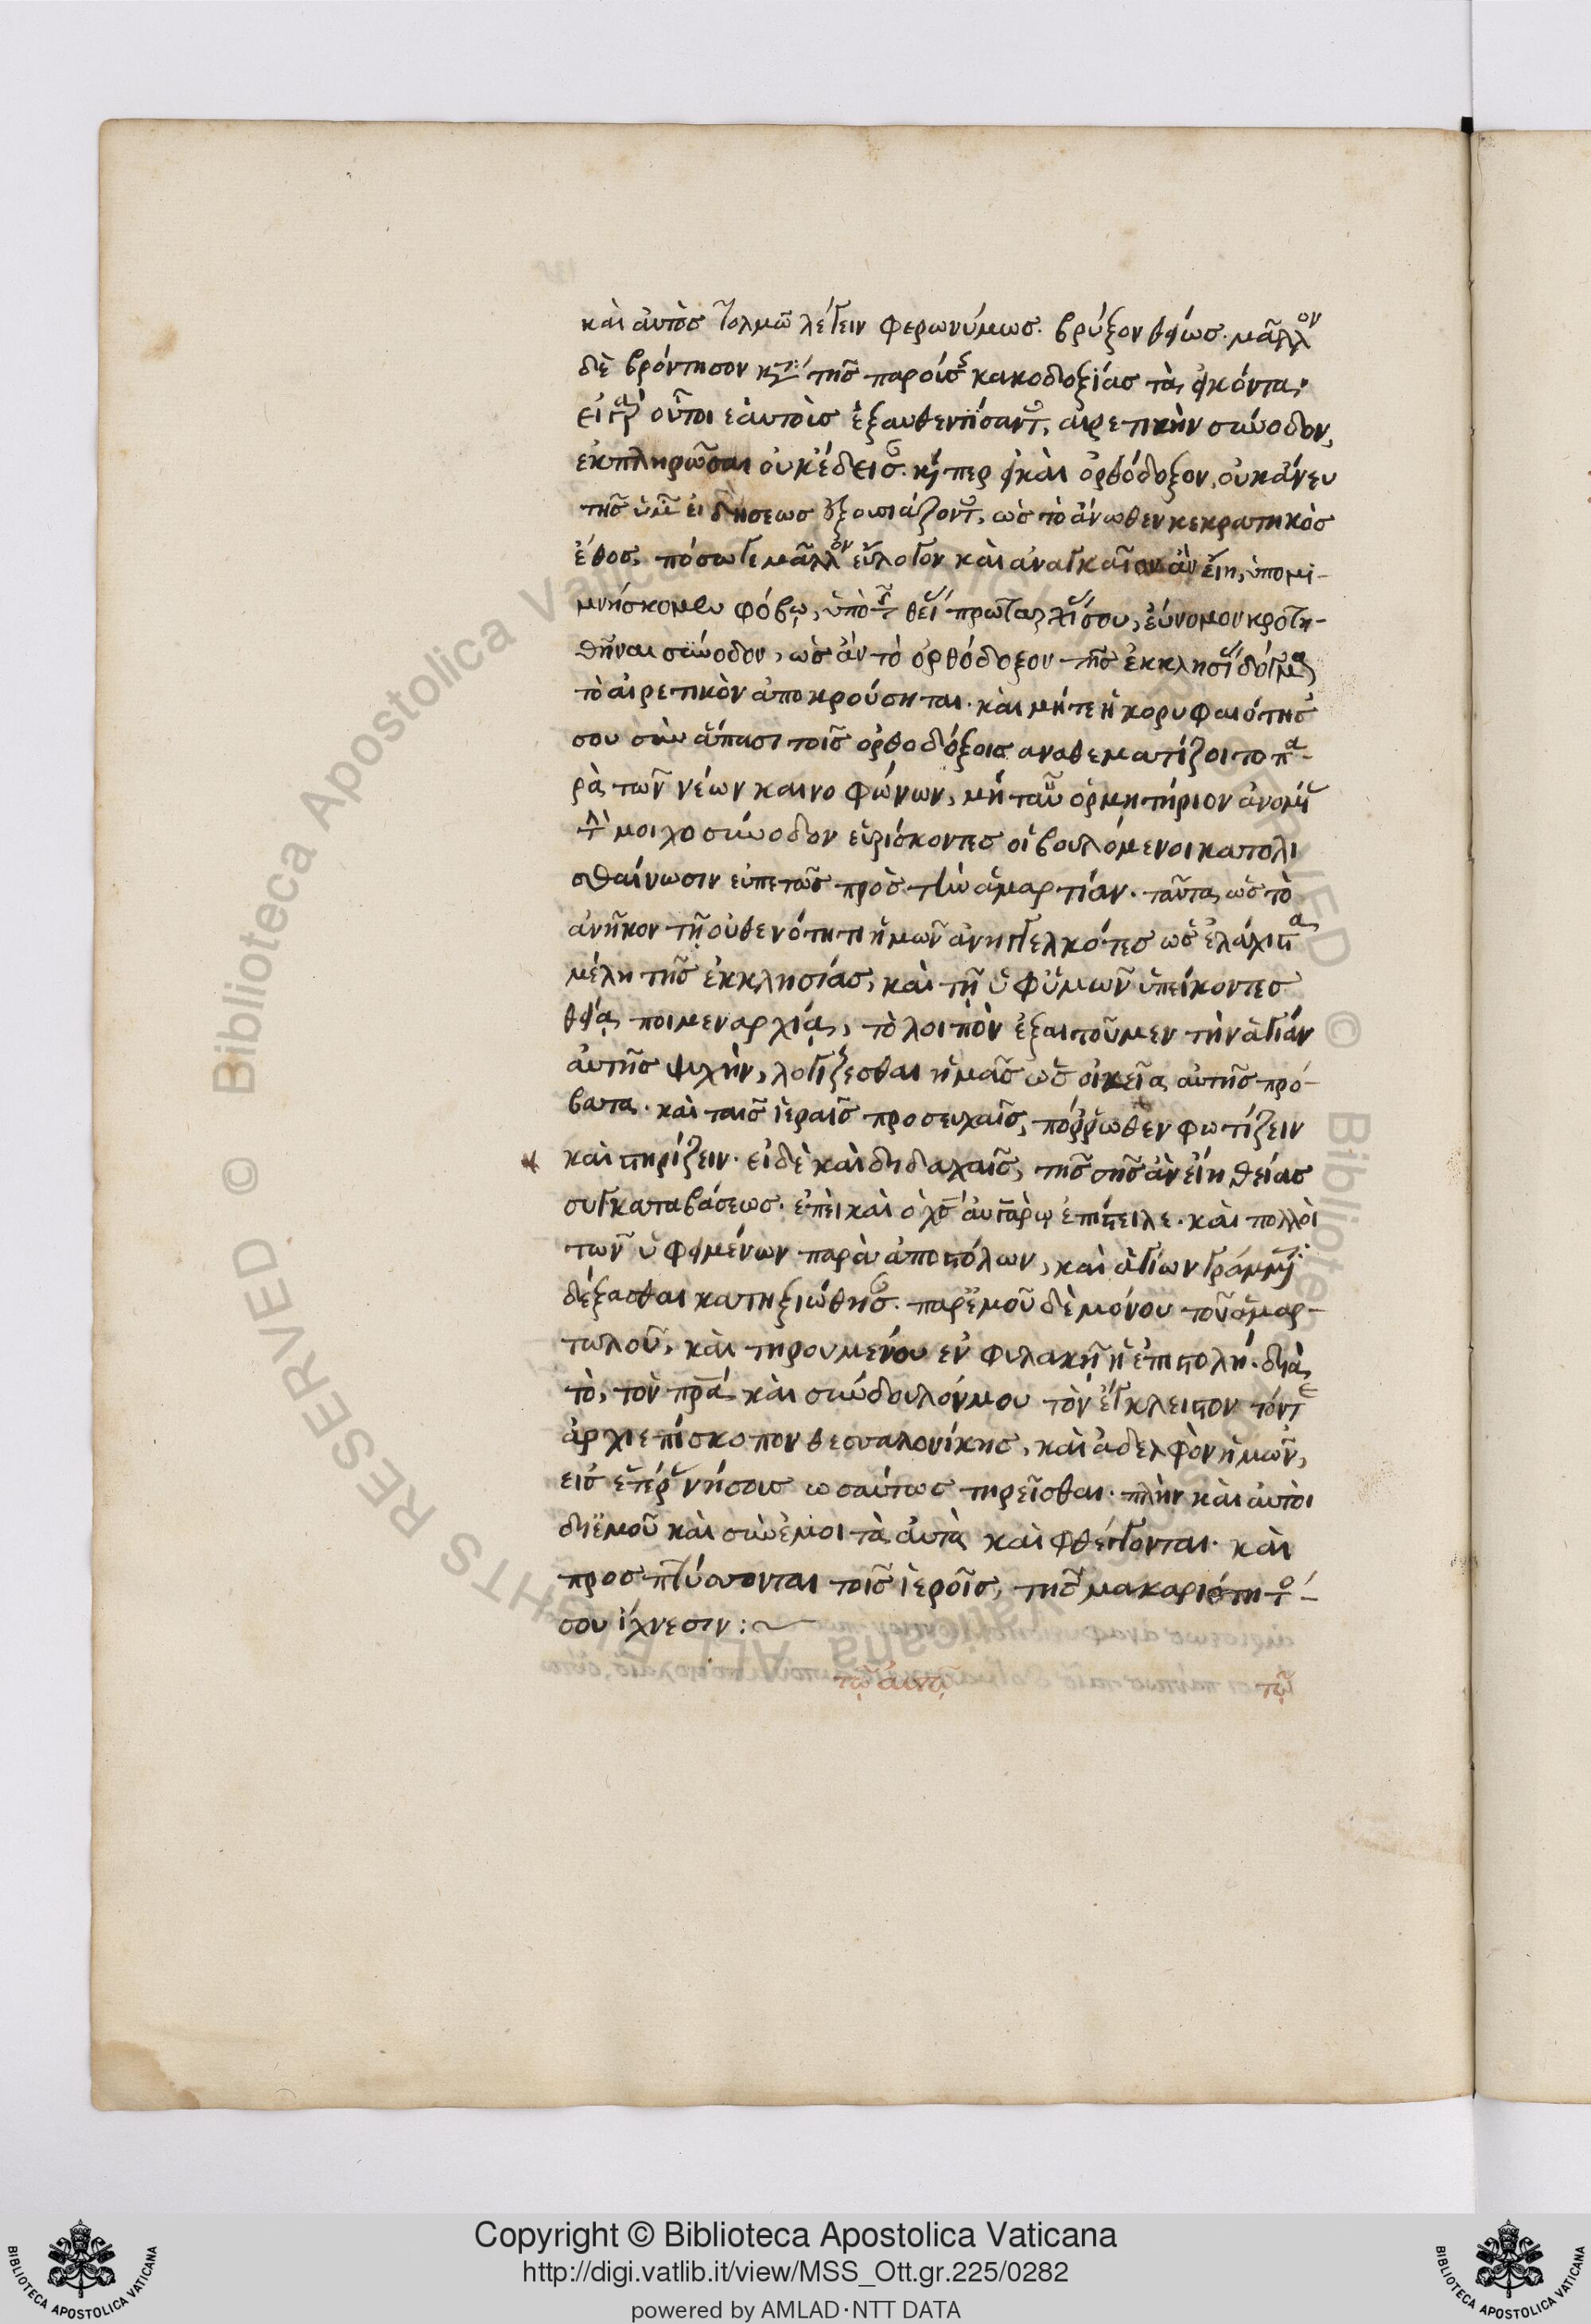 καὶ αὐτὸς τολμῶ λέγειν φερωνύμως. βρύξον θείως. μᾶλλον
δὲ βρόντησον κατὰ τῆς παρούσης κακοδοξίας τὰ εἰκότα.
εἰ γὰρ οὗτοι ἑαυτοῖς ἐξαυθεντήσαντες, αἱρετικὴν σύνοδον
ἐκπληρῶσαι οὐκ ἔδεισαν. εἴπερ εἰ καὶ ὀρθόδοξον, οὐκ ἄνευ
τῆς ὑμῶν εἰδήσεως ἐξουσιάζοντες, ὡς τὸ ἄνωθεν κεκρατηκὸς
ἔθος, πόσω γε μᾶλλον εὔλογον καὶ ἀναγκαῖον ἂν εἴη, ὑπομι-
μνήσκομεν φόβῳ, ὑπὸ τῆς θείας πρωταρχίας σου, ἔννομον κροτη-
θῆναι σύνοδον, ὡς ἂν τὸ ὀρθόδοξον τῆς ἐκκλησίας δόγμα
τὸ αἱρετικὸν ἀποκρούσηται. καὶ μήτε ἡ κορυφαιότης
σου σὺν ἅπασι τοῖς ὀρθοδόξοις ἀναθεματίζοιτο πα-
ρὰ τῶν νέων καινοφώνων, μήτ' αὖ ὁρμητήριον ἀνομίας
τὴν μοιχοσύνοδον εὑρίσκοντες οἱ βουλόμενοι κατολι
σθαίνωσιν εὐπετῶς πρὸς τὴν ἁμαρτίαν. ταῦτα ὡς τὸ
ἀνῆκον τῇ οὐθενότητι ἡμῶν ἀνηγγελκότες ὡς ἐλάχιστα
μέλη τῆς ἐκκλησίας, καὶ τῇ ὑφ' ὑμῶν ὑπείκοντες
θείᾳ ποιμεναρχίᾳ, τὸ λοιπὸν ἐξαιτοῦμεν τὴν ἁγίαν
αὐτῆς ψυχὴν, λογίζεσθαι ἡμᾶς ὡς οἰκεῖα αὐτῆς πρό-
βατα. καὶ ταῖς ἱεραῖς προσευχαῖς, πόρρωθεν φωτίζειν
καὶ στηρίζειν. εἰ δὲ καὶ διδαχαῖς, τῆς σῆς ἂν εἴη θείας
συγκαταβάσεως. ἐπεὶ καὶ ὁ χς αὐγάρῳ ἐπέστειλε. καὶ πολλοὶ
τῶν ὑφειμένων παρὰ ἀποστόλων, καὶ ἁγίων γράμματα
δέξασθαι κατηξιώθησαν. παρ' ἐμοῦ δὲ μόνου τοῦ ἁμαρ-
τωλοῦ, καὶ τηρουμένου ἐν φυλακῇ ἡ ἐπιστολή. διὰ
τὸ, τὸν πρα καὶ σύνδουλόν μου τὸν ἔγκλειστον τόν τε
ἀρχιεπίσκοπον θεσσαλονίκης, καὶ ἀδελφὸν ἡμῶν,
εἰς ἑτέρας νήσους ὡσαύτως τηρεῖσθαι. πλὴν καὶ αὐτοὶ
δι' ἐμοῦ καὶ σὺν ἐμοὶ τὰ αὐτὰ καὶ φθέγγονται. καὶ
προσπτύσσονται τοῖς ἱεροῖς, τῆς μακαριότητός
σου ἴχνεσιν:
τῷ αὐτῷ τῷ
Copyright © Biblioteca Apostolica Vaticana
http://digi.vatlib.it/view/MSS_Ott.gr.225/0282
powered by AMLAD·NTT DATA